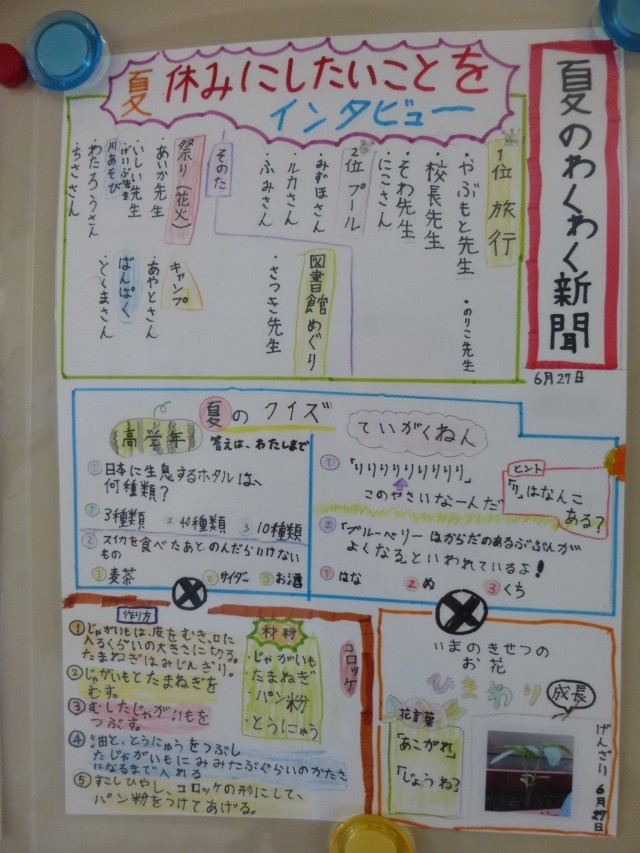 夏のわくわく新聞
6月27日
夏休みにしたいことを
インタビュー
1位 旅行
・やぶもと先生
・のりこ先生
・校長先生
・そわ先生
・にこさん
2位 プール
・みずほさん
・ルカさん
・ふみさん
図書館めぐり
・さつき先生
そのた
祭り(花火)
・あいか先生
・いしい先生
川あそび
・わたろうさん
・ちささん
キャンプ
・あやとさん
ばんぱく
・とくまさん
夏のクイズ
高学年
答えは、わたしまで
①日本に生息するホタルは、
何種類?
①3種類 2 40種類 3 10種類
②スイカを食べたあとのんだらいけない
もの
①麦茶 ②サイダー ③お酒
ていがくねん
①「りりりりりりりりり」
このやさいなーんだ
ヒント
「り」はなんこ
ある?
②「ブルーベリーはからだのあるぶぶんが
よくなる」といわれているよ!
①はな ②め ③くち
コロッケ
材粉
・じゃがいも
・たまねぎ
・パン粉
・とうにゅう
作り方
①じゃがいもは、皮をむき、口に
入るくらいの大きさに切る。
たまねぎはみじんぎり。
②じゃがいもとたまねぎを
むす。
③むしたじゃがいもを
つぶす。
④油と、とうにゅうをつぶし
たじゃがいもにみみたぶぐらいのかたさ
になるまで入れる
⑤すこしひやし、コロッケの形にして、
パン粉をつけてあげる。
いまのきせつの
お花
ひまわり
成長
花言葉
「あこがれ」
「じょうねつ」
げんざい 6月27日